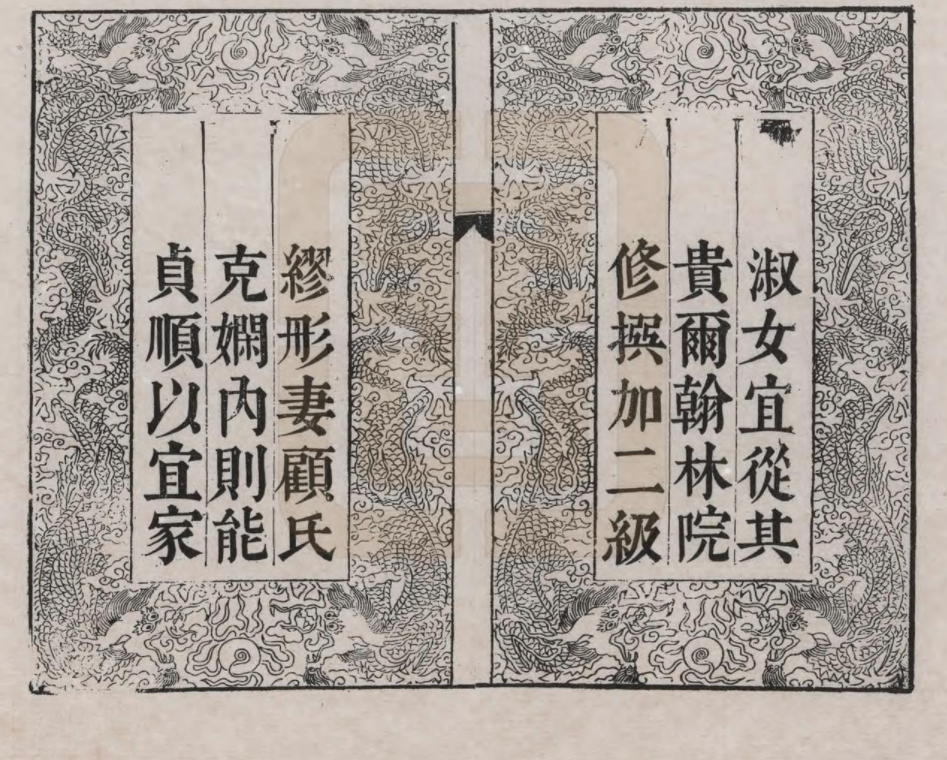 淑女宜從其
貴爾翰林院
修撰加二級
繆彤妻顧氏
克嫻内則能
貞順以宜家